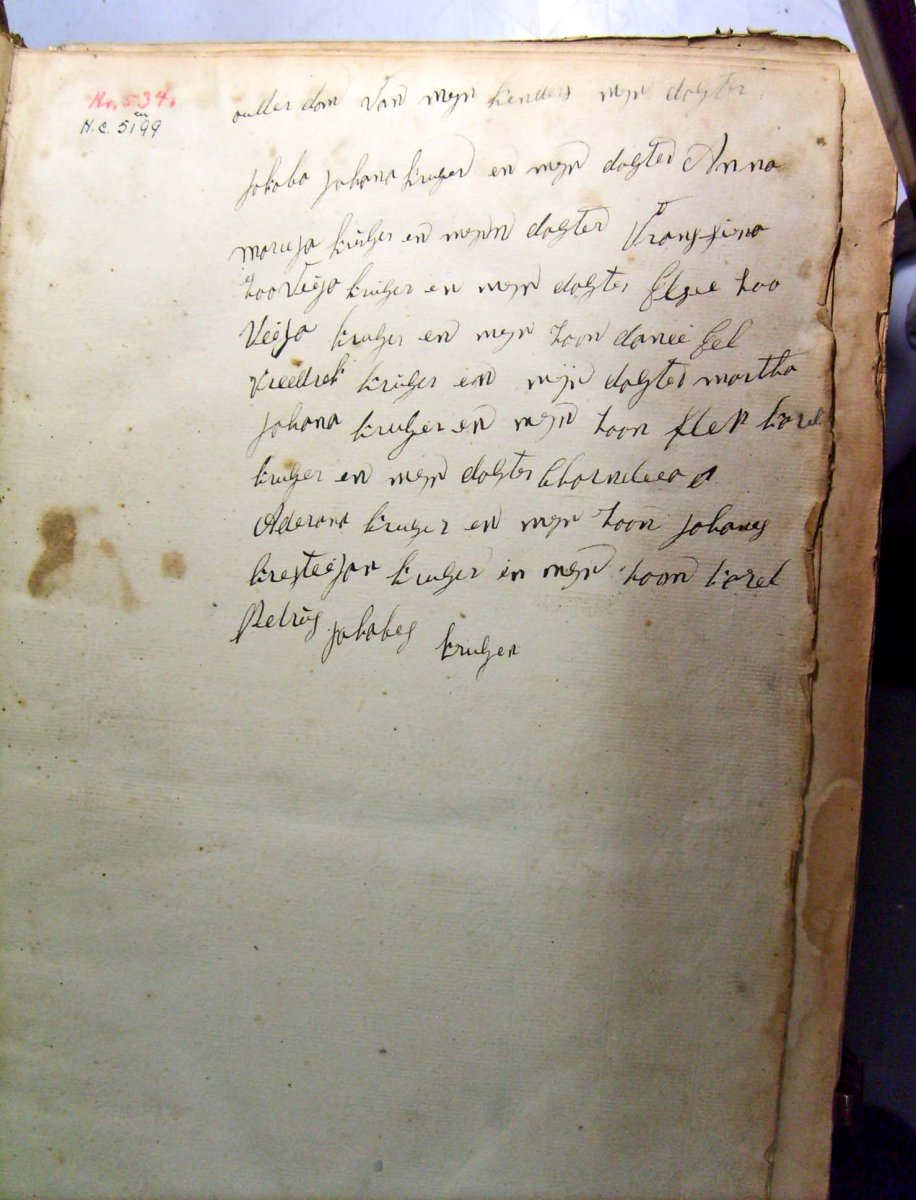 Kr. 534.
H.C. 5199
en
ouder dom Van mijn kenders mijn dogter
Jokoba Johana kruger en mijn dogter Anna
marieja kruger en mijn dogter Vransfina
zooveija kruger en mijn dogter Elsee zoo
Veeja kruger en mijn zoon daneifel
vreedrek kruger en mijn dogter martha
Johana kruger en mijn zoon karel
kruger en mijn dogter khorneleea
Aderana kruger en mijn zoon Johanes
kresteejan kruger en mijn zoon karel
Petrus Jokobes kruger